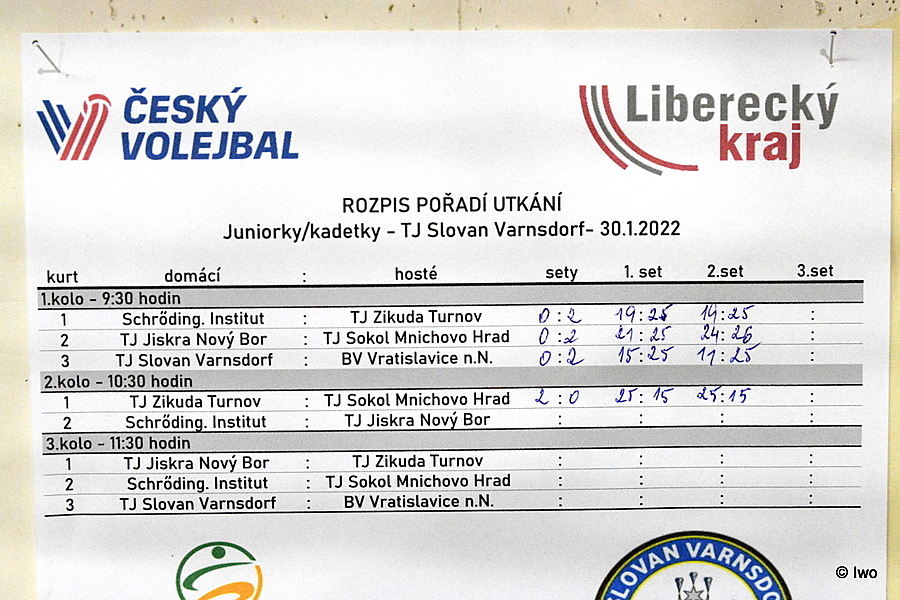 ČESKÝ
VOLEJBAL
Liberecký
kraj
ROZPIS POŘADÍ UTKÁNÍ
Juniorky/kadetky - TJ Slovan Varnsdorf- 30.1.2022
kurt domácí : hosté sety 1. set 2.set 3.set
1.kolo - 9:30 hodin
1 Schrőding. Institut : TJ Zikuda Turnov 0:2 19:25 19:25 :
2 TJ Jiskra Nový Bor : TJ Sokol Mnichovo Hrad 0:2 21:25 24:26 :
3 TJ Slovan Varnsdorf : BV Vratislavice n.N. 0:2 15:25 11:25 :
2.kolo - 10:30 hodin
1 TJ Zikuda Turnov : TJ Sokol Mnichovo Hrad 2:0 25:15 25:15 :
2 Schrőding. Institut : TJ Jiskra Nový Bor : : : :
3.kolo - 11:30 hodin
1 TJ Jiskra Nový Bor : TJ Zikuda Turnov : : : :
2 Schrőding. Institut : TJ Sokol Mnichovo Hrad : : : :
3 TJ Slovan Varnsdorf : BV Vratislavice n.N. : : : :
SLOVAN VARNSDO
© Iwo